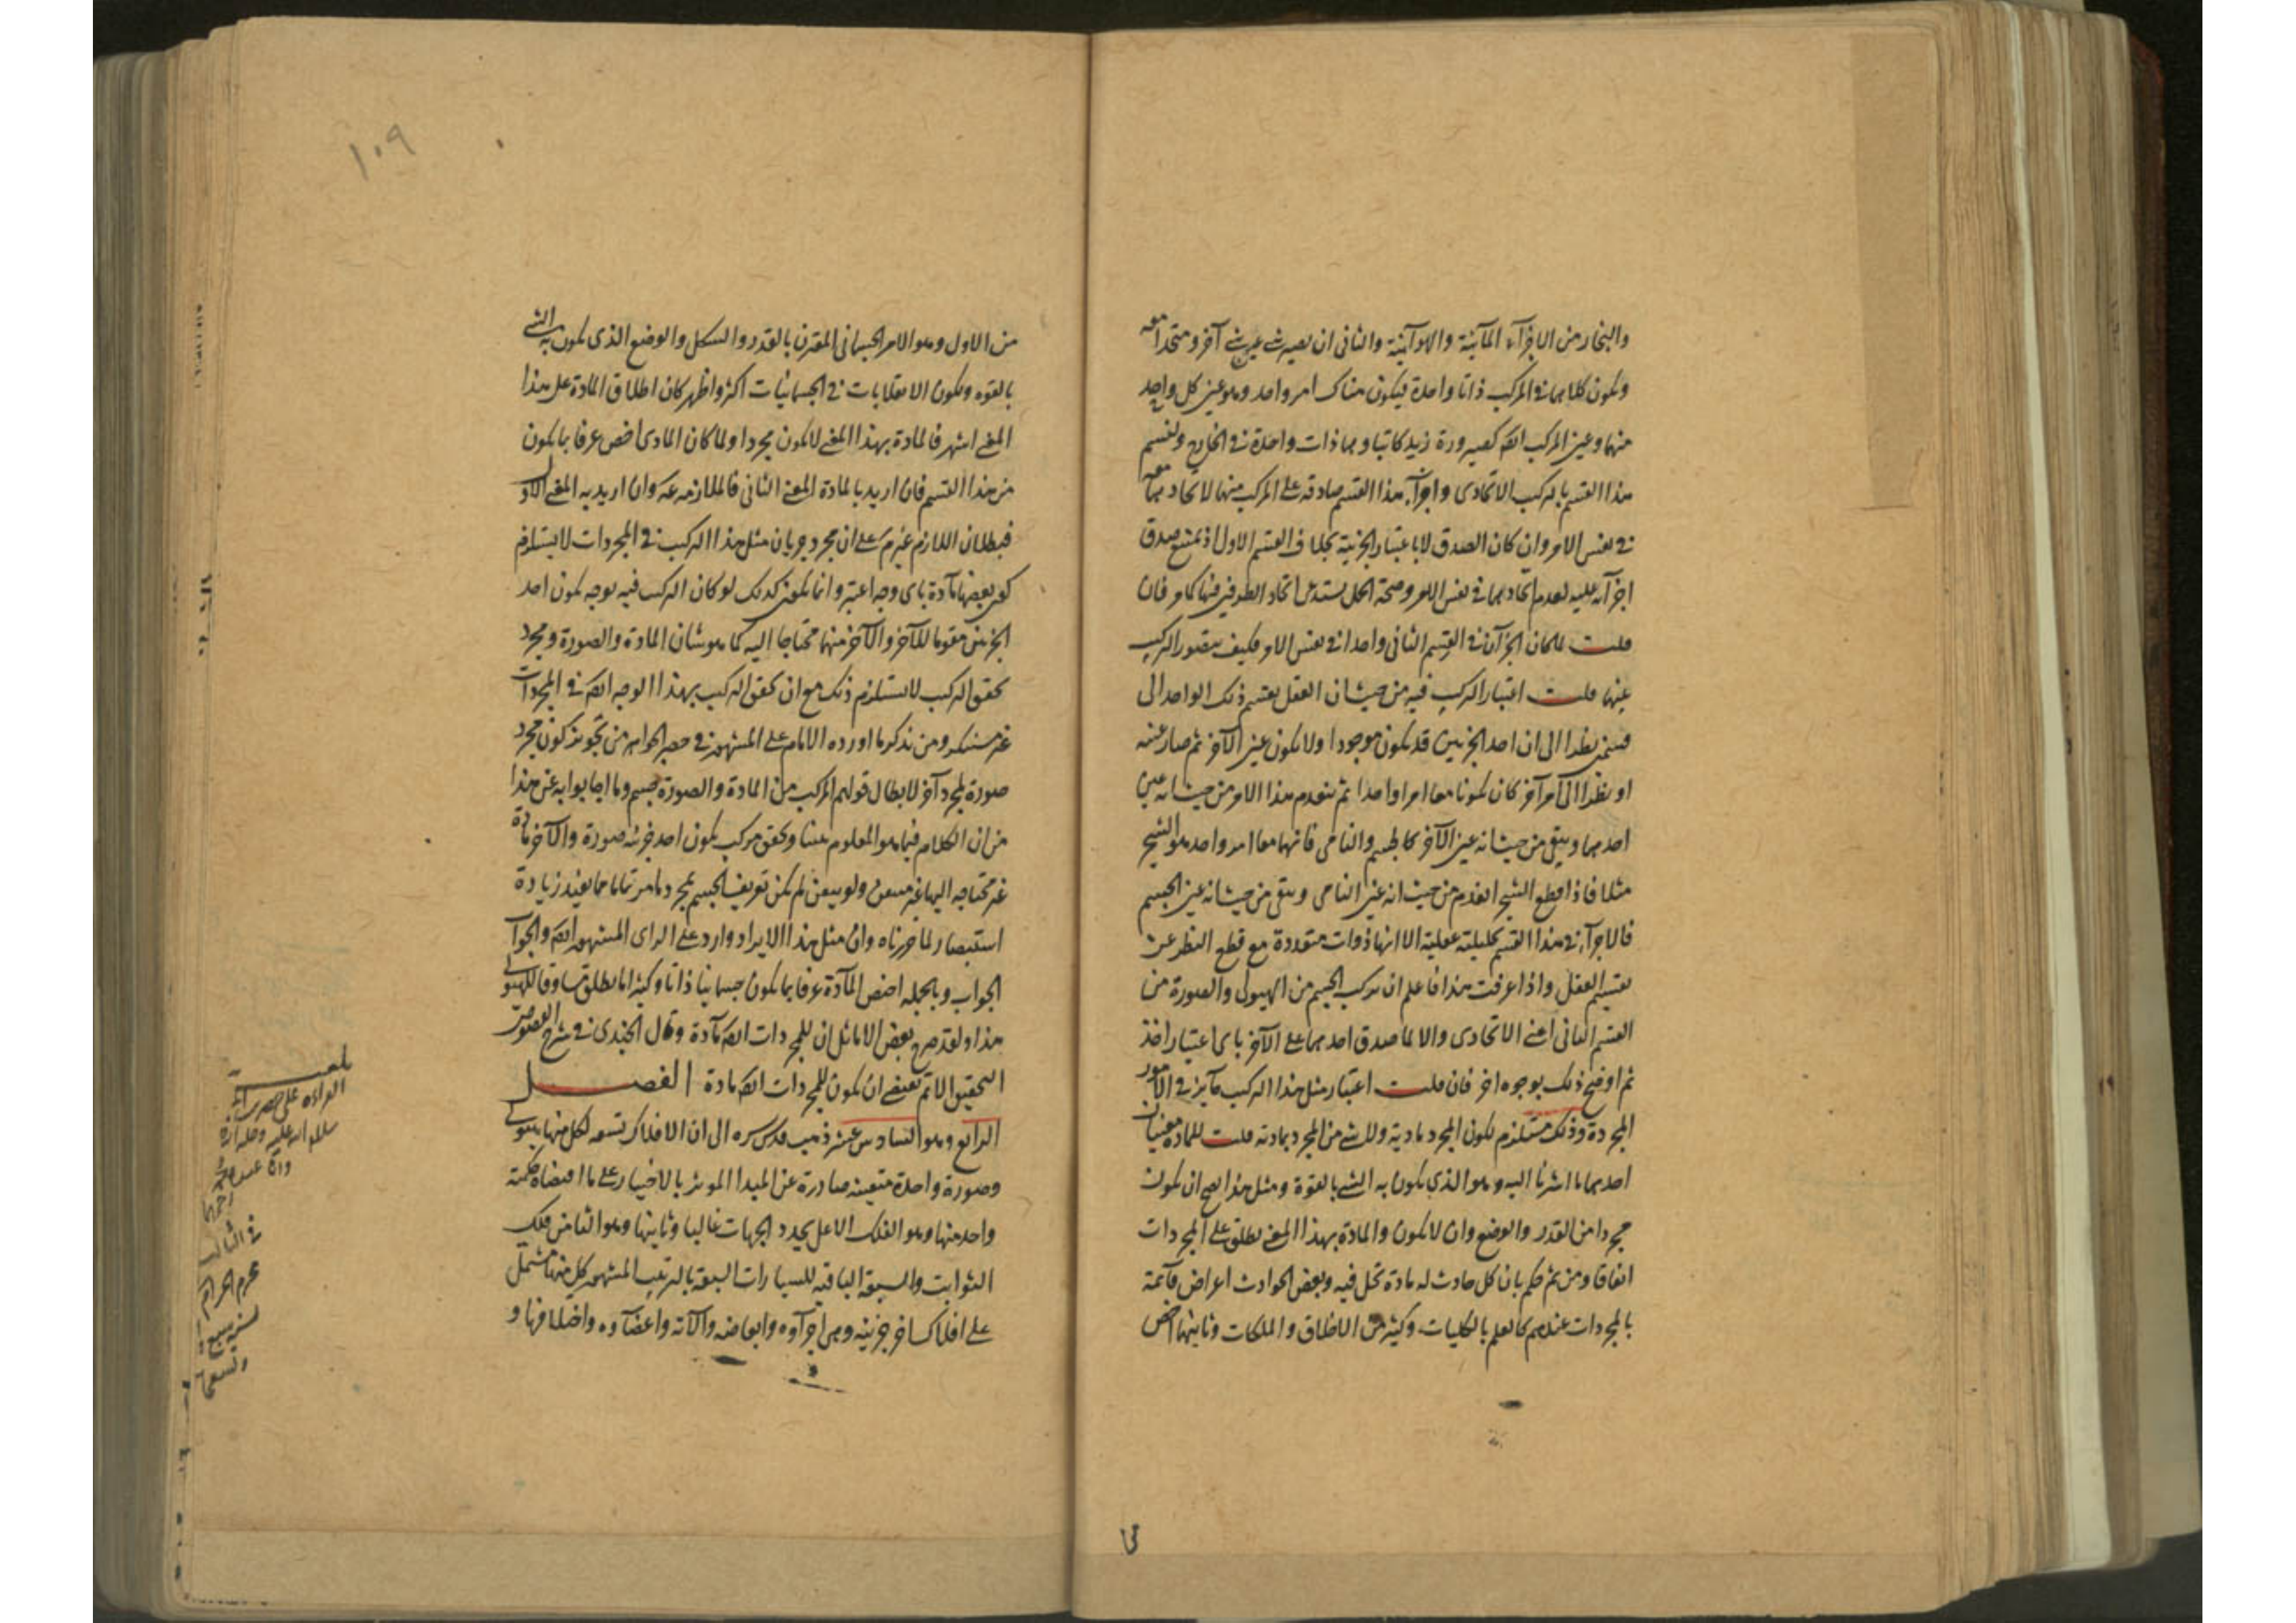 والبخار من الاجزآء المآئية والهوآئية والثانى ان يصير شئ عين شئ آخر ومتحدا معه
ويكون كلاهما فى المركب ذاتا واحدة فيكون هناك امر واحد وهو عين كل واحد
منهما وعين المركب ايضا كصيرورة زيد كاتبا وهما ذات واحدة فى الخارج ولنسم
هذا القسم بالتركيب الاتحادى واجزآء هذا القسم صادقة على المركب منها لاتحادهما معه
فى نفس الامر وان كان الصدق لا باعتبار الجزئية بخلاف القسم الاول اذ يمتنع صدق
اجزآئه عليه لعدم اتحادهما فى نفس الامر وصحة الحمل يستدعى اتحاد الطرفين فيها كما مر فان
قلت لما كان الجزآن فى القسم الثانى واحدا فى نفس الامر فكيف يتصور التركيب
عنهما قلت اعتبار التركيب فيه من حيث ان العقل يقسم ذلك الواحد الى
قسمين نظرا الى ان احد الجزئين قد يكون موجودا ولا يكون عين الآخر ثم صار عينه
او نظرا الى امر آخر كان يكونا معا امرا واحدا ثم ينعدم هذا الامر من حيث انه عين
احدهما ويبقى من حيث انه عين الآخر كالجسم والنامى فانهما معا امر واحد هو الشجر
مثلا فاذا قطع الشجر انعدم من حيث انه عين النامى وبقى من حيث انه عين الجسم
فالاجزآء فى هذا القسم تحليلية عقلية الا انها ذوات متعددة مع قطع النظر عن
تقسيم العقل واذا عرفت هذا فاعلم ان تركب الجسم من الهيولى والصورة من
القسم الثانى اعنى الاتحادى والا لما صدق احدهما على الآخر باى اعتبار اخذ
ثم اوضح ذلك بوجوه اخر فان قلت اعتبار مثل هذا التركيب جآيز فى الامور
المجردة وذلك مستلزم لكون المجرد مادية ولا شئ من المجرد بمادية قلت للمادة معنيان
احدهما ما اشرنا اليه وهو الذى يكون به الشئ بالقوة ومثل هذا يصح ان يكون
مجردا من القدر والوضع وان لا يكون والمادة بهذا المعنى يطلق على المجردات
اتفاقا ومن ثم حكم بان كل حادث له مادة تحل فيه وبعض الحوادث اعراض قآئمة
بالمجردات عندهم كالعلم بالكليات وكثير من الاخلاق والملكات وثانيهما اخص
من الاول وهو الامر الجسمانى المقترن بالقدر والشكل والوضع الذى يكون به الشئ
بالقوه ولكون الانقلابات فى الجسمانيات اكثر واظهر كان اطلاق المادة على هذا
المعنى اشهر فالمادة بهذا المعنى لا يكون مجردا ولما كان المادى اخص عرفا بما يكون
من هذا القسم فان اريد بالمادة المعنى الثانى فالملازمه ممنوعة وان اريد به المعنى الاول
فبطلان اللازم غير مسلم على ان مجرد جريان مثل هذا التركيب فى المجردات لا يستلزم
كون بعضها مآدة باى وجه اعتبر وانما يكون كذلك لو كان التركيب فيه بوجه يكون احد
الجزئين مقوما للآخر والآخر منهما محتاجا اليه كما هو شان المادة والصورة ومجرد
تحقق التركيب لا يستلزم ذلك مع ان تحقق التركيب بهذا الوجه ايضا فى المجردات
غير مستنكر ومن تذكر ما اورده الامام على المشهور فى حصر الجواهر من تجويز كون مجرد
صورة لمجرد آخر لابطال قولهم المركب من المادة والصورة جسم وما اجابوا به عن هذا
من ان الكلام فيما هو المعلوم عندنا وتحقق مركب يكون احد جزئيه صورة والآخر مادة
غير محتاجه اليها غير متيقن ولو تيقن لم يكن تعريف الجسم بمجرد ما مر تماما مما يفيد زيادة
استبصار لما حررناه وان مثل هذا الايراد وارد على الراى المشهور ايضا والجواب
الجواب وبالجمله اختص المآدة عرفا بما يكون جسمانيا ذاتا وكثيرا ما يطلق مساوقا للهيولى
هذا ولقد صرح بعض الاماثل ان للمجردات ايضا مآدة وقال الجندى فى شرح الفصوص
التحقيق الاتم يقتضى ان يكون للمجردات ايضا مادة الفصل
الرابع وهو السادس عشر ذهب قدس سره الى ان الافلاك تسعه لكل منها هيولى
وصورة واحدة متعينه صادرة عن المبدا الموثر بالاختيار على ما اقتضاه حكمته
واحد منها وهو الفلك الاعلى يحدد الجهات غالبا وثانيها وهو الثامن فلك
الثوابت والسبعة الباقية للسيارات السبعة بالترتيب المشهور كل منها مشتمل
على افلاك اخر جزئيه وهى اجزآوه وابعاضه والآته واعضآوه واختلافها و
١٠٩